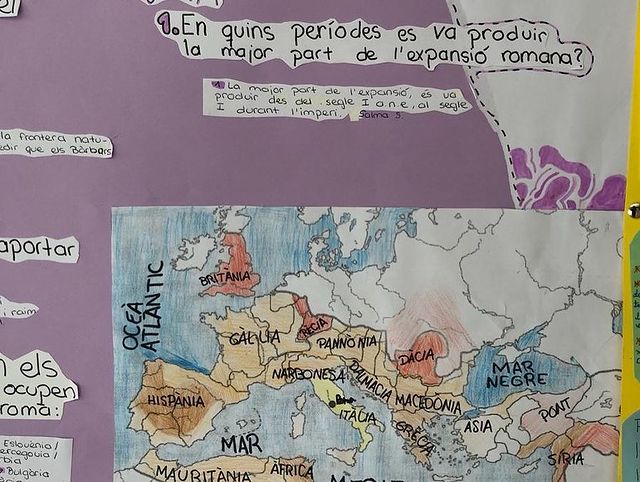 el
1. En quins períodes es va produir
la major part de l'expansió romana?
1 La major part de l'expansió, es va
produir des del segle I a.n.e, al segle
I durant l'imperi. Salma S.
la frontera natu-
edir que els Bàrbars
aportar
i raim
n els
ocupen
roma:
Eslovènia /
ercegovia /
bia
Bulgària
OCEÀ
ATLÀNTIC
BRITÀNIA
GÀL·LIA
RÈCIA
PANNÒNIA
DÀCIA
NARBONESA
DALMÀCIA
MACEDÒNIA
MAR
NEGRE
HISPÀNIA
ITÀLIA
GRÈCIA
ASIA
PONT
SÍRIA
MAR
MAURITÀNIA
ÀFRICA